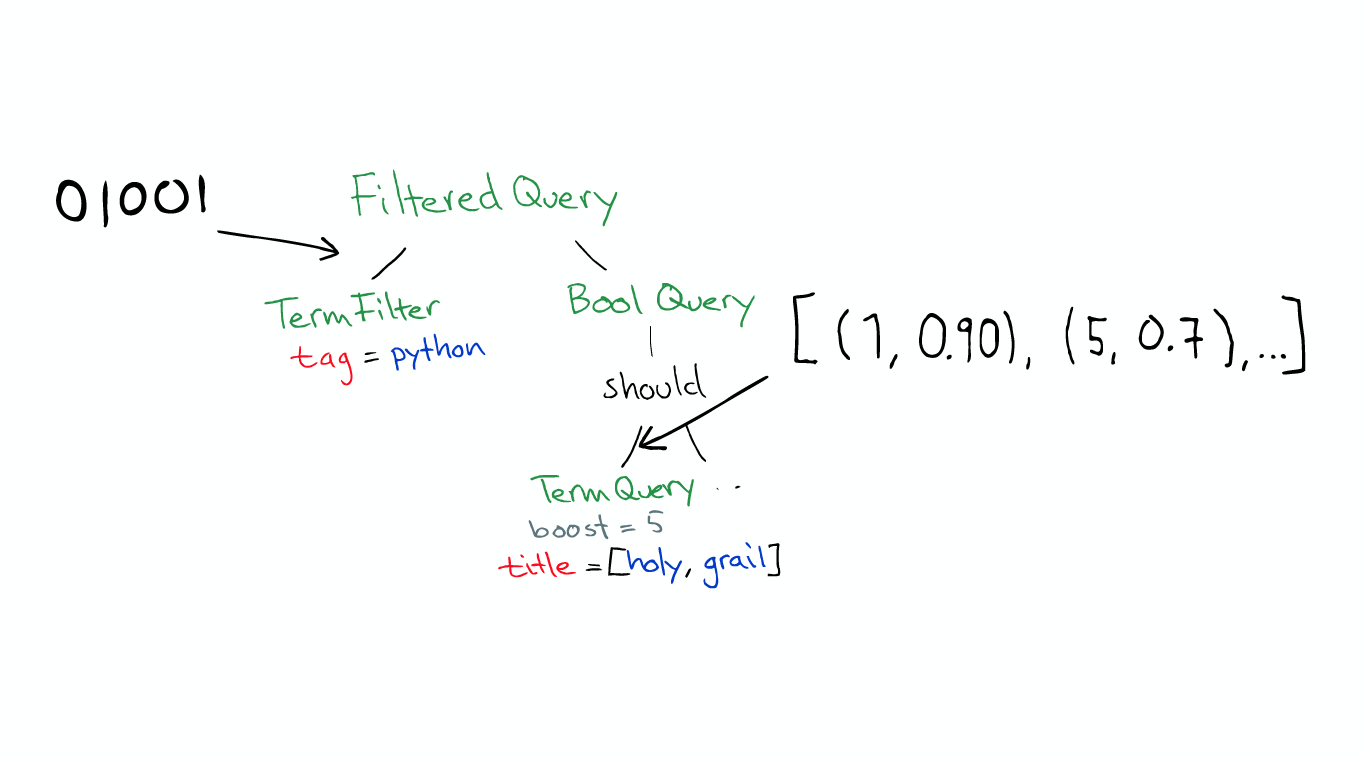 01001
Filtered Query
TermFilter
tag = python
Bool Query
[(1, 0.90), (5, 0.7), ...]
should
TermQuery ..
boost = 5
title = [holy, grail]